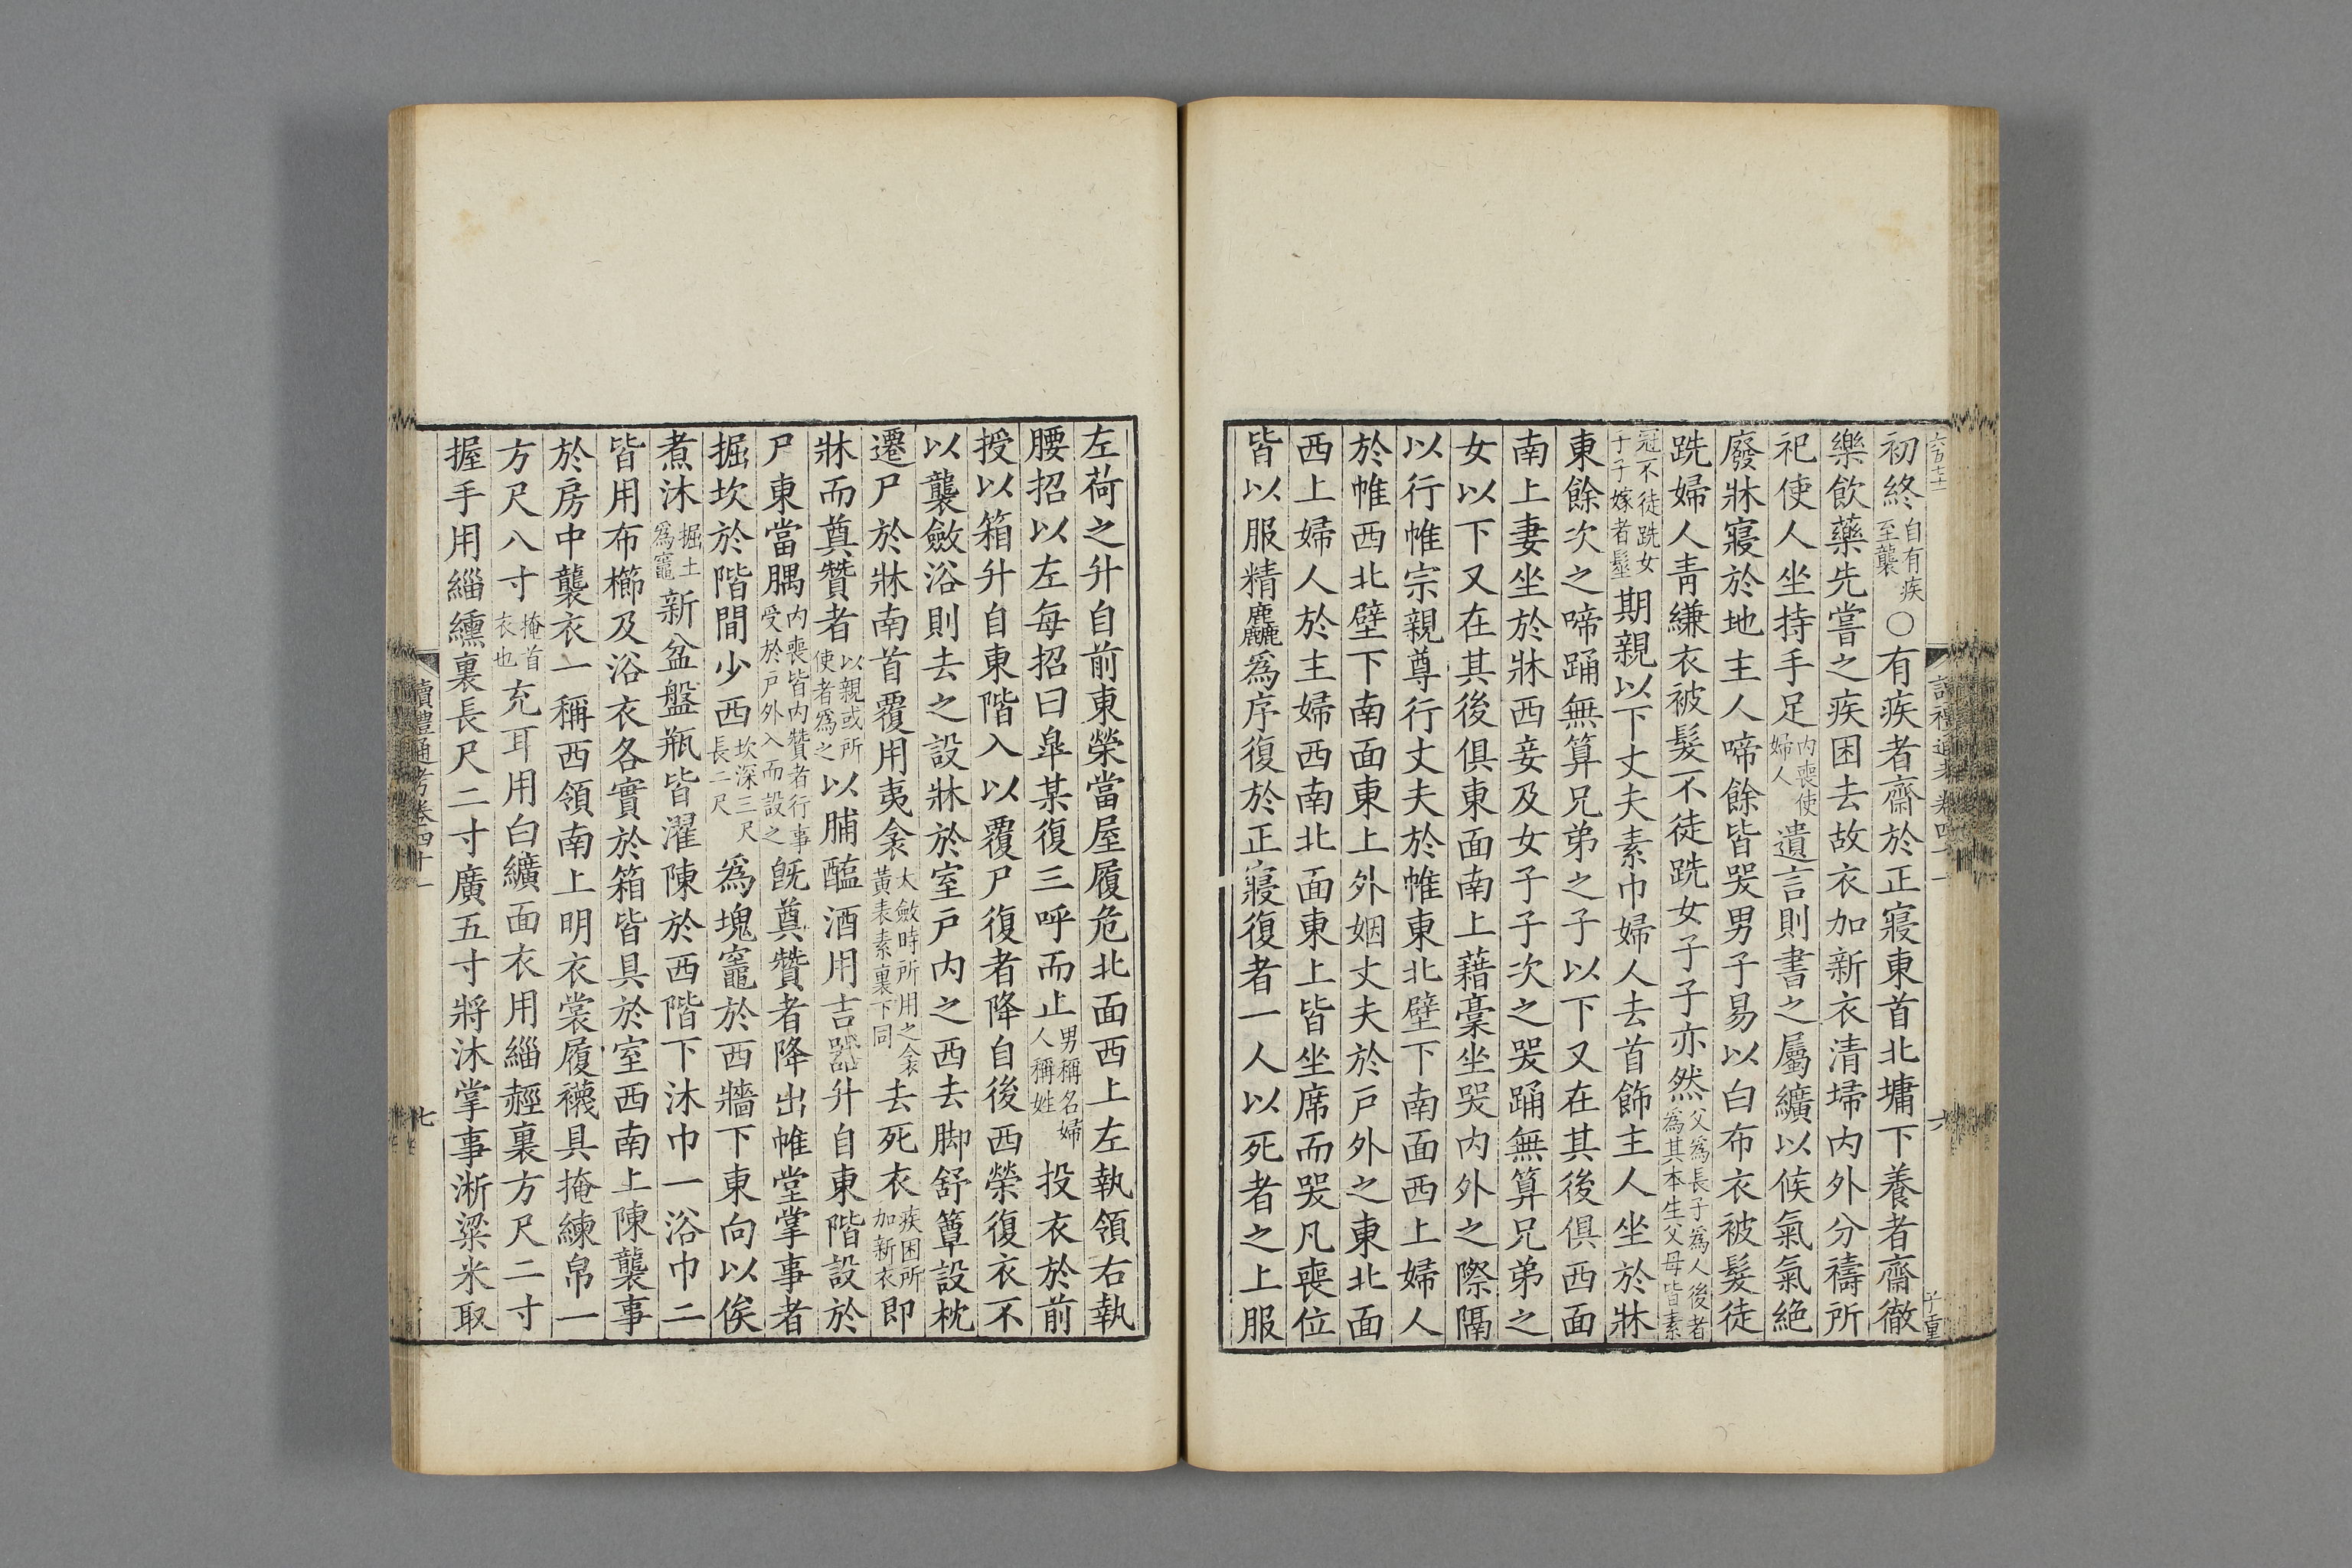 初終自有疾至襲○有疾者齋於正寢東首北墉下養者齋徹
樂飲藥先嘗之疾困去故衣加新衣清埽内外分禱所
祀使人坐持手足内喪使婦人遺言則書之屬纊以候氣氣絶
廢牀寢於地主人啼餘皆哭男子易以白布衣被髮徒
跣婦人青縑衣被髮不徒跣女子子亦然父爲長子爲人後者爲其本生父母皆素
冠不徒跣女子子嫁者髽期親以下丈夫素巾婦人去首飾主人坐於牀
東餘次之啼踊無算兄弟之子以下又在其後俱西面
南上妻坐於牀西妾及女子子次之哭踊無算兄弟之
女以下又在其後俱東面南上藉槀坐哭内外之際隔
以行帷宗親尊行丈夫於帷東北壁下南面西上婦人
於帷西北壁下南面東上外姻丈夫於戸外之東北面
西上婦人於主婦西南北面東上皆坐席而哭凡喪位
皆以服精麤爲序復於正寢復者一人以死者之上服
左荷之升自前東榮當屋履危北面西上左執領右執
腰招以左每招曰臯某復三呼而止男稱名婦人稱姓投衣於前
授以箱升自東階入以覆尸復者降自後西榮復衣不
以襲斂浴則去之設牀於室戸内之西去脚舒簟設枕
遷尸於牀南首覆用夷衾大斂時所用之衾黃表素裏下同去死衣疾困所加新衣即
牀而奠贊者以親或所使者爲之以脯醢酒用吉器升自東階設於
尸東當腢内喪皆内贊者行事受於戸外入而設之旣奠贊者降出帷堂掌事者
掘坎於階間少西坎深三尺長二尺爲塊竈於西牆下東向以俟
煮沐掘土爲竈新盆盤瓶皆濯陳於西階下沐巾一浴巾二
皆用布櫛及浴衣各實於箱皆具於室西南上陳襲事
於房中襲衣一稱西領南上明衣裳履襪具掩練帛一
方尺八寸掩首衣也充耳用白纊面衣用緇䞓裏方尺二寸
握手用緇纁裏長尺二寸廣五寸將沐掌事淅粱米取
讀禮通考卷四十一
七